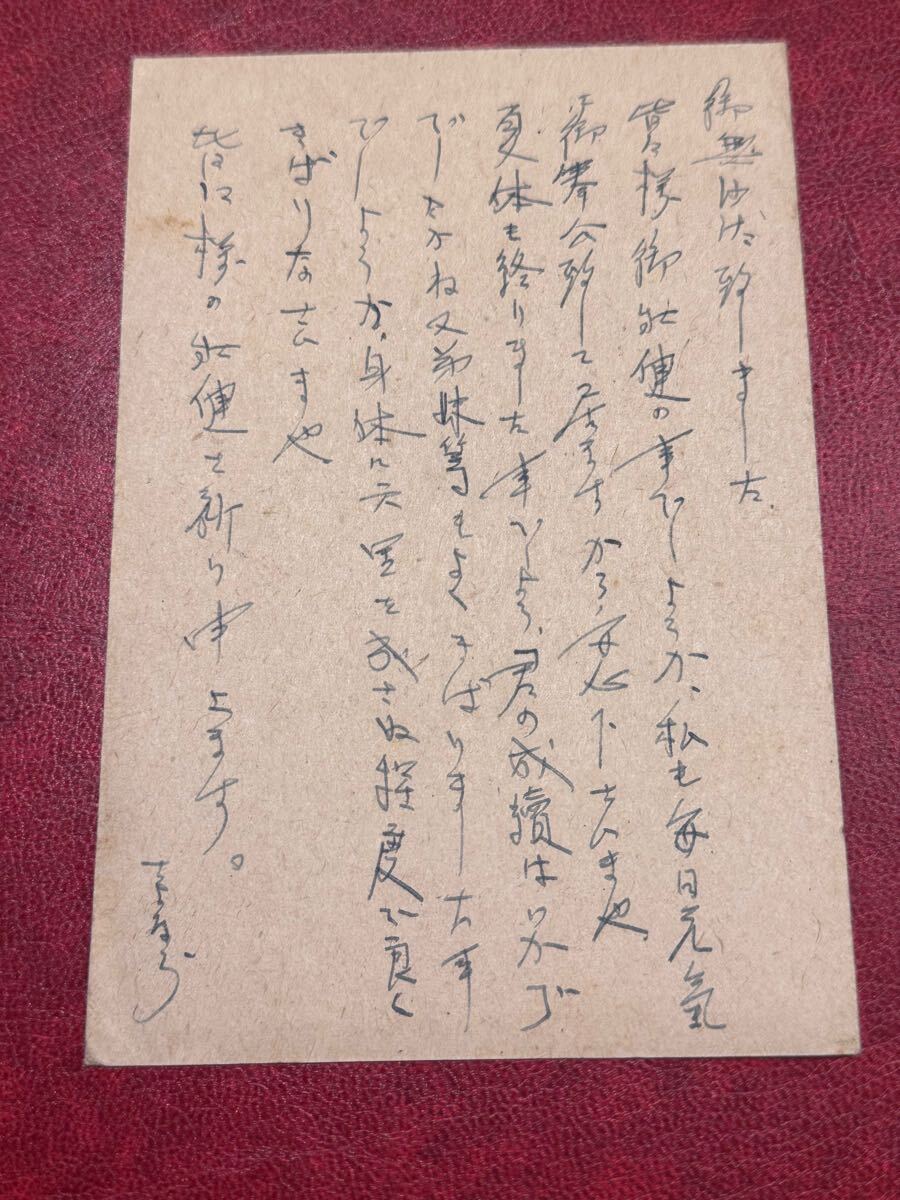 御無沙汰致しました
皆々様御壮健の事でしょうか、私も毎日元氣
に御奉公致して居ますから、安心下さいませや
夏休も終りました事でしょう、君の成績はいかが
でしたかね又弟妹等もよくきばりました事
でしょうか、身体に六置を成さぬ程度に良く
きばりなさいませや
皆々様の壮健を祈り申上ます。
さよなら